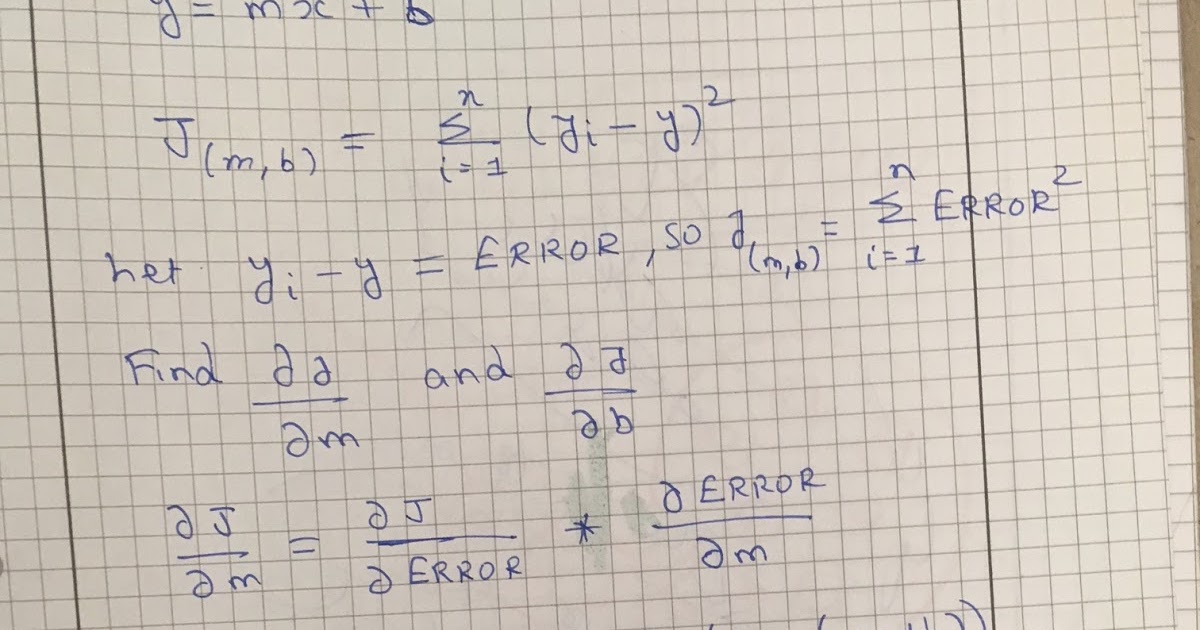 y = mx + b
J(m,b) = Σ_{i=1}^{n} (yi - y)²
Let yi - y = ERROR, so J(m,b) = Σ_{i=1}^{n} ERROR²
Find ∂J/∂m and ∂J/∂b
∂J/∂m = ∂J/∂ERROR * ∂ERROR/∂m